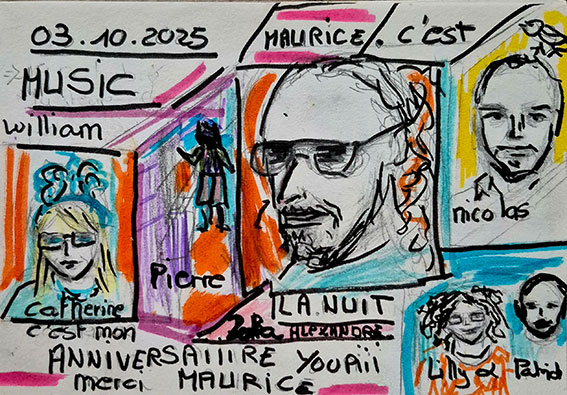 03..10.2025
MAURICE. c'est
MUSIC
william
nicolas
Pierre
Catherine
LA NUIT
c'est mon
ALEXANDRE
Lilly &
ANNIVERSAIIIRE YOUPiii
merci MAURICE